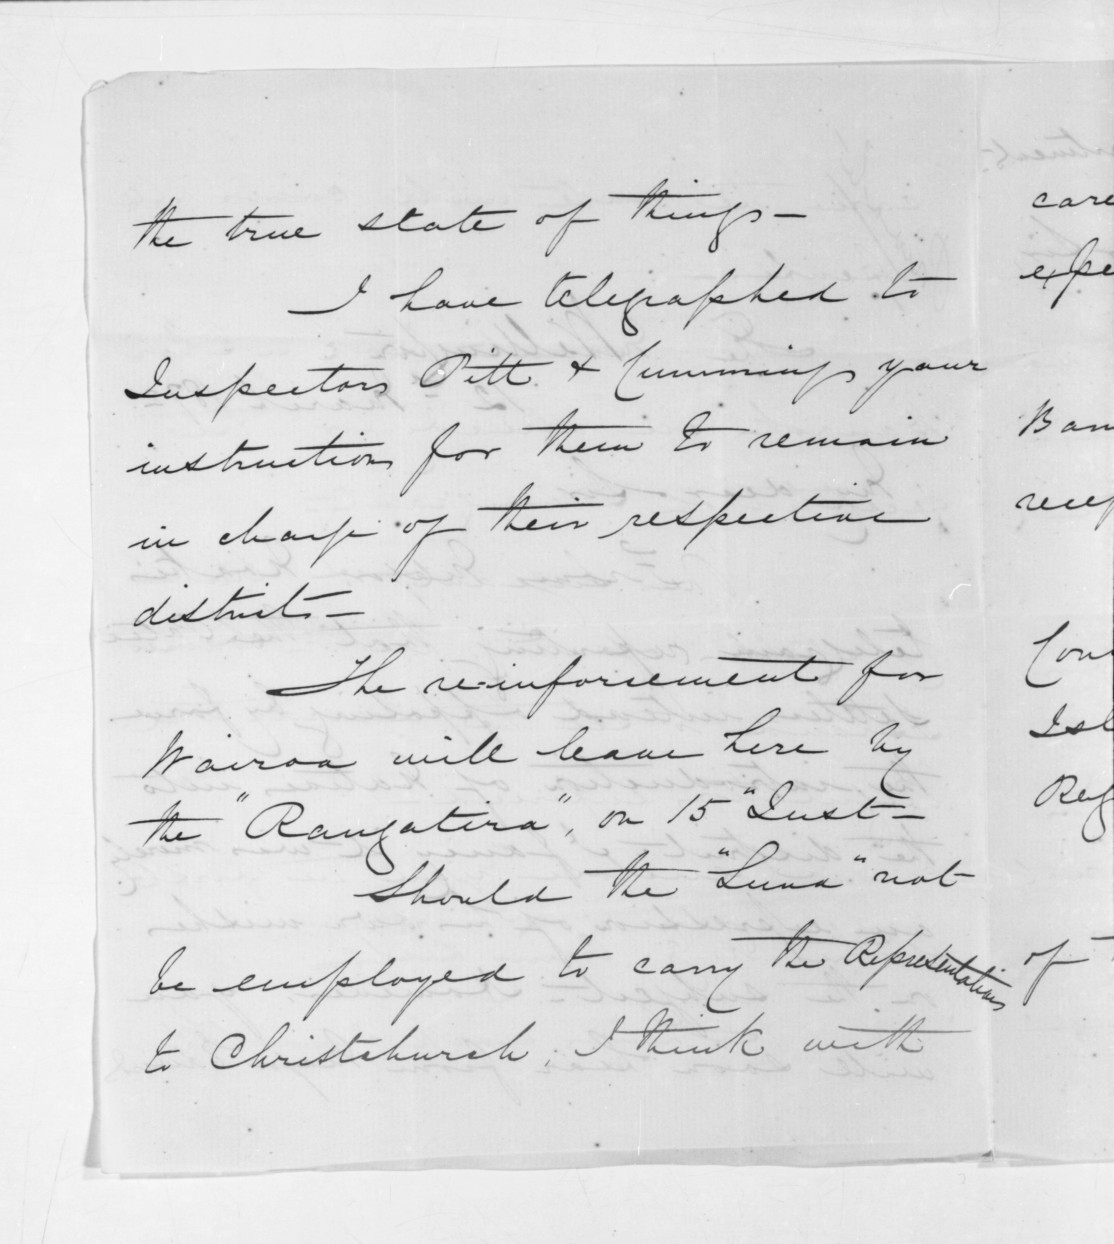 the true state of things –
I have telegraphed to
Inspectors Pitt & Cumming your
instructions for them to remain
in charge of their respective
districts –
The re-inforsement for
Wairoa will leave here by
the "Rangatira", on 15" Inst –
Should the "Luna" not
be employed to carry the Representatives
to Christchurch, I think with
care
expe
Ban
Isl
of